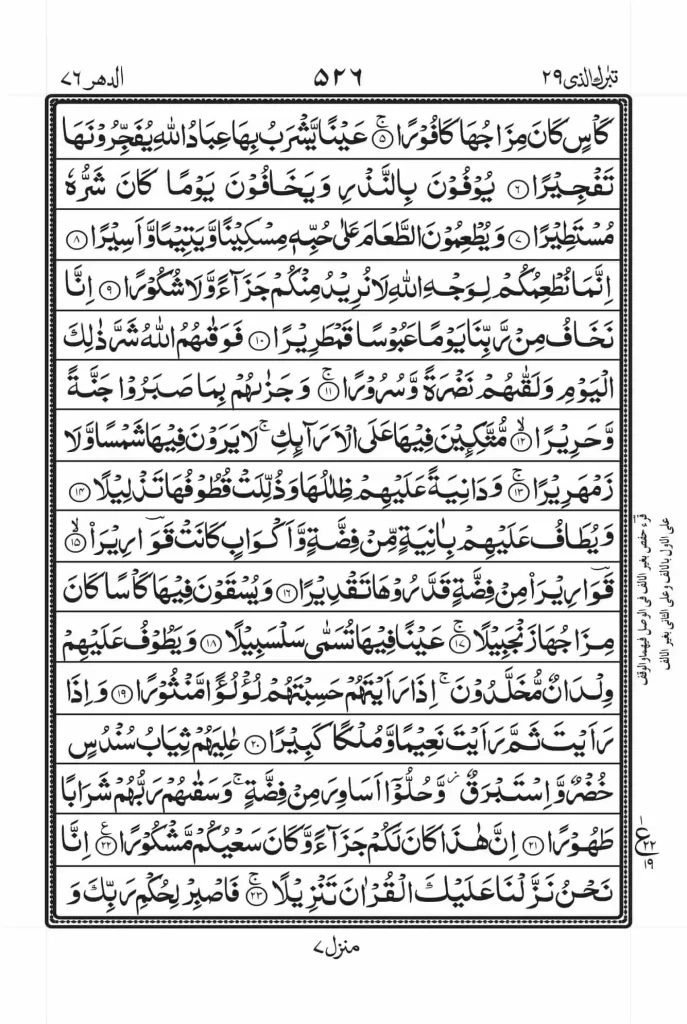 تبٰرك الذی ٢٩
۵٢٦
الدهر ٧٦
كَاْسٍ كَانَ مِزَاجُهَا كَافُوْرًا ۚ‏﴿۵﴾ عَيْنًا يَّشْرَبُ بِهَا عِبَادُ اللّٰهِ يُفَجِّرُوْنَهَا
تَفْجِيْرًا ﴿۶﴾ يُوْفُوْنَ بِالنَّذْرِ وَيَخَافُوْنَ يَوْمًا كَانَ شَرُّهٗ
مُسْتَطِيْرًا ﴿۷﴾ وَيُطْعِمُوْنَ الطَّعَامَ عَلٰى حُبِّهٖ مِسْكِيْنًا وَّيَتِيْمًا وَّاَسِيْرًا ﴿۸﴾
اِنَّمَا نُطْعِمُكُمْ لِوَجْهِ اللّٰهِ لَا نُرِيْدُ مِنْكُمْ جَزَآءً وَّلَا شُكُوْرًا ﴿۹﴾ اِنَّا
نَخَافُ مِنْ رَّبِّنَا يَوْمًا عَبُوْسًا قَمْطَرِيْرًا ﴿۱۰﴾ فَوَقٰىهُمُ اللّٰهُ شَرَّ ذٰلِكَ
الْيَوْمِ وَلَقّٰىهُمْ نَضْرَةً وَّسُرُوْرًا ۚ‏﴿۱۱﴾ وَجَزٰىهُمْ بِمَا صَبَرُوْا جَنَّةً
وَّحَرِيْرًا ۙ‏﴿۱۲﴾ مُّتَّكِـِٕيْنَ فِيْهَا عَلَى الْاَرَآئِكِ ۚ لَا يَرَوْنَ فِيْهَا شَمْسًا وَّلَا
زَمْهَرِيْرًا ۚ‏﴿۱۳﴾ وَدَانِيَةً عَلَيْهِمْ ظِلٰلُهَا وَذُلِّلَتْ قُطُوْفُهَا تَذْلِيْلًا ﴿۱۴﴾
وَيُطَافُ عَلَيْهِمْ بِاٰنِيَةٍ مِّنْ فِضَّةٍ وَّاَكْوَابٍ كَانَتْ قَوَا۟رِيْرَا۟ ۙ‏﴿۱۵﴾
قَوَا۟رِيْرَا۟ مِنْ فِضَّةٍ قَدَّرُوْهَا تَقْدِيْرًا ﴿۱۶﴾ وَيُسْقَوْنَ فِيْهَا كَاْسًا كَانَ
مِزَاجُهَا زَنْجَبِيْلًا ۚ‏﴿۱۷﴾ عَيْنًا فِيْهَا تُسَمّٰى سَلْسَبِيْلًا ﴿۱۸﴾ وَيَطُوْفُ عَلَيْهِمْ
وِلْدَانٌ مُّخَلَّدُوْنَ ۚ اِذَا رَاَيْتَهُمْ حَسِبْتَهُمْ لُؤْلُؤًا مَّنْثُوْرًا ﴿۱۹﴾ وَاِذَا
رَاَيْتَ ثَمَّ رَاَيْتَ نَعِيْمًا وَّمُلْكًا كَبِيْرًا ﴿۲۰﴾ عٰلِيَهُمْ ثِيَابُ سُنْدُسٍ
خُضْرٌ وَّاِسْتَبْرَقٌ ۡ وَّحُلُّوْۤا اَسَاوِرَ مِنْ فِضَّةٍ ۚ وَسَقٰىهُمْ رَبُّهُمْ شَرَابًا
طَهُوْرًا ﴿۲۱﴾ اِنَّ هٰذَا كَانَ لَكُمْ جَزَآءً وَّكَانَ سَعْيُكُمْ مَّشْكُوْرًا ﴿۲۲﴾ اِنَّا
نَحْنُ نَزَّلْنَا عَلَيْكَ الْقُرْاٰنَ تَنْزِيْلًا ۚ‏﴿۲۳﴾ فَاصْبِرْ لِحُكْمِ رَبِّكَ وَ
قرء حفص بغير الالف فى الوصل فيهما والوقف
على الاول بالالف وعلى الثانى بغير الالف
منزل ٧